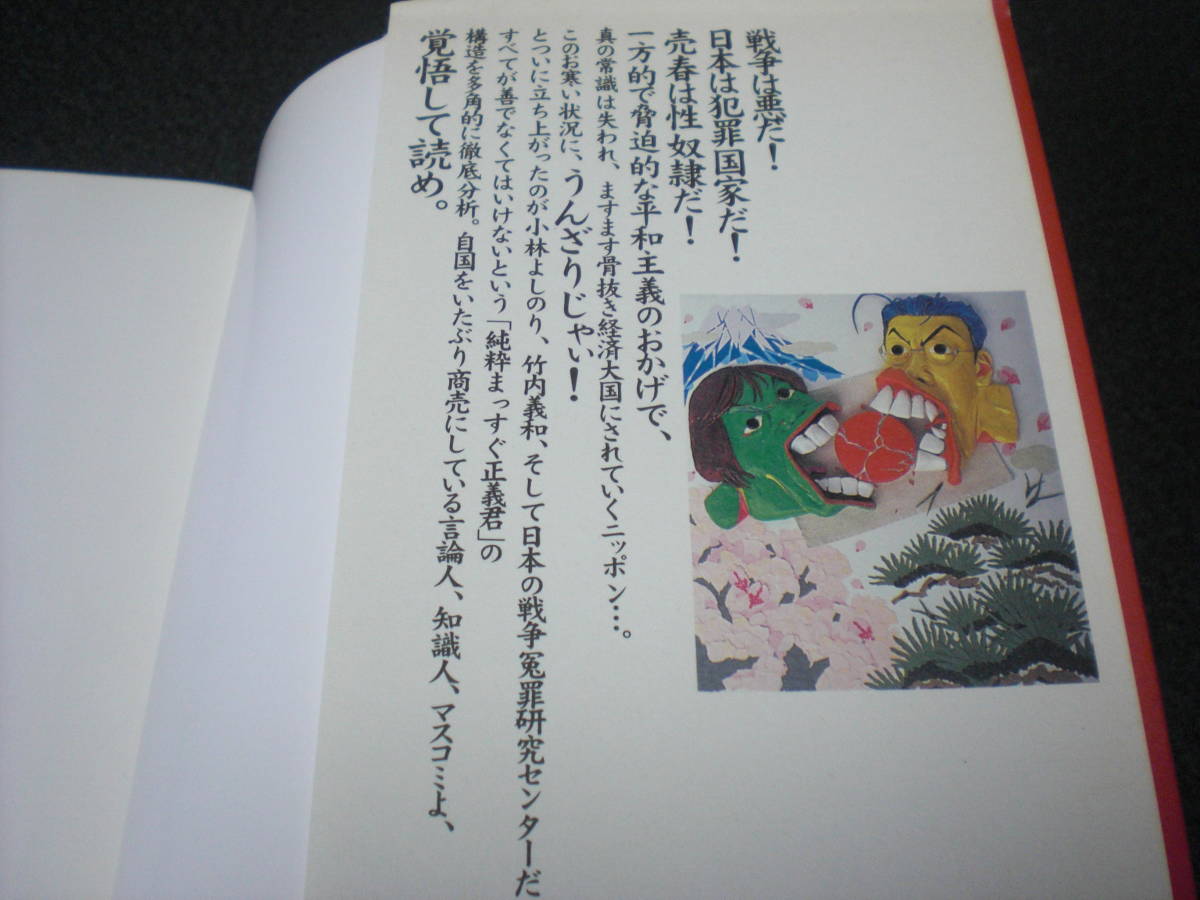 戦争は悪だ！
日本は犯罪国家だ！
売春は性奴隷だ！
一方的で脅迫的な平和主義のおかげで、
真の常識は失われ、ますます骨抜き経済大国にされていくニッポン…。
このお寒い状況に、うんざりじゃい！
とついに立ち上がったのが小林よしのり、竹内義和、そして日本の戦争冤罪研究センターだ
すべてが善でなくてはいけないという「純粋まっすぐ正義君」の
構造を多角的に徹底分析。自国をいたぶり商売にしている言論人、知識人、マスコミよ、
覚悟して読め。